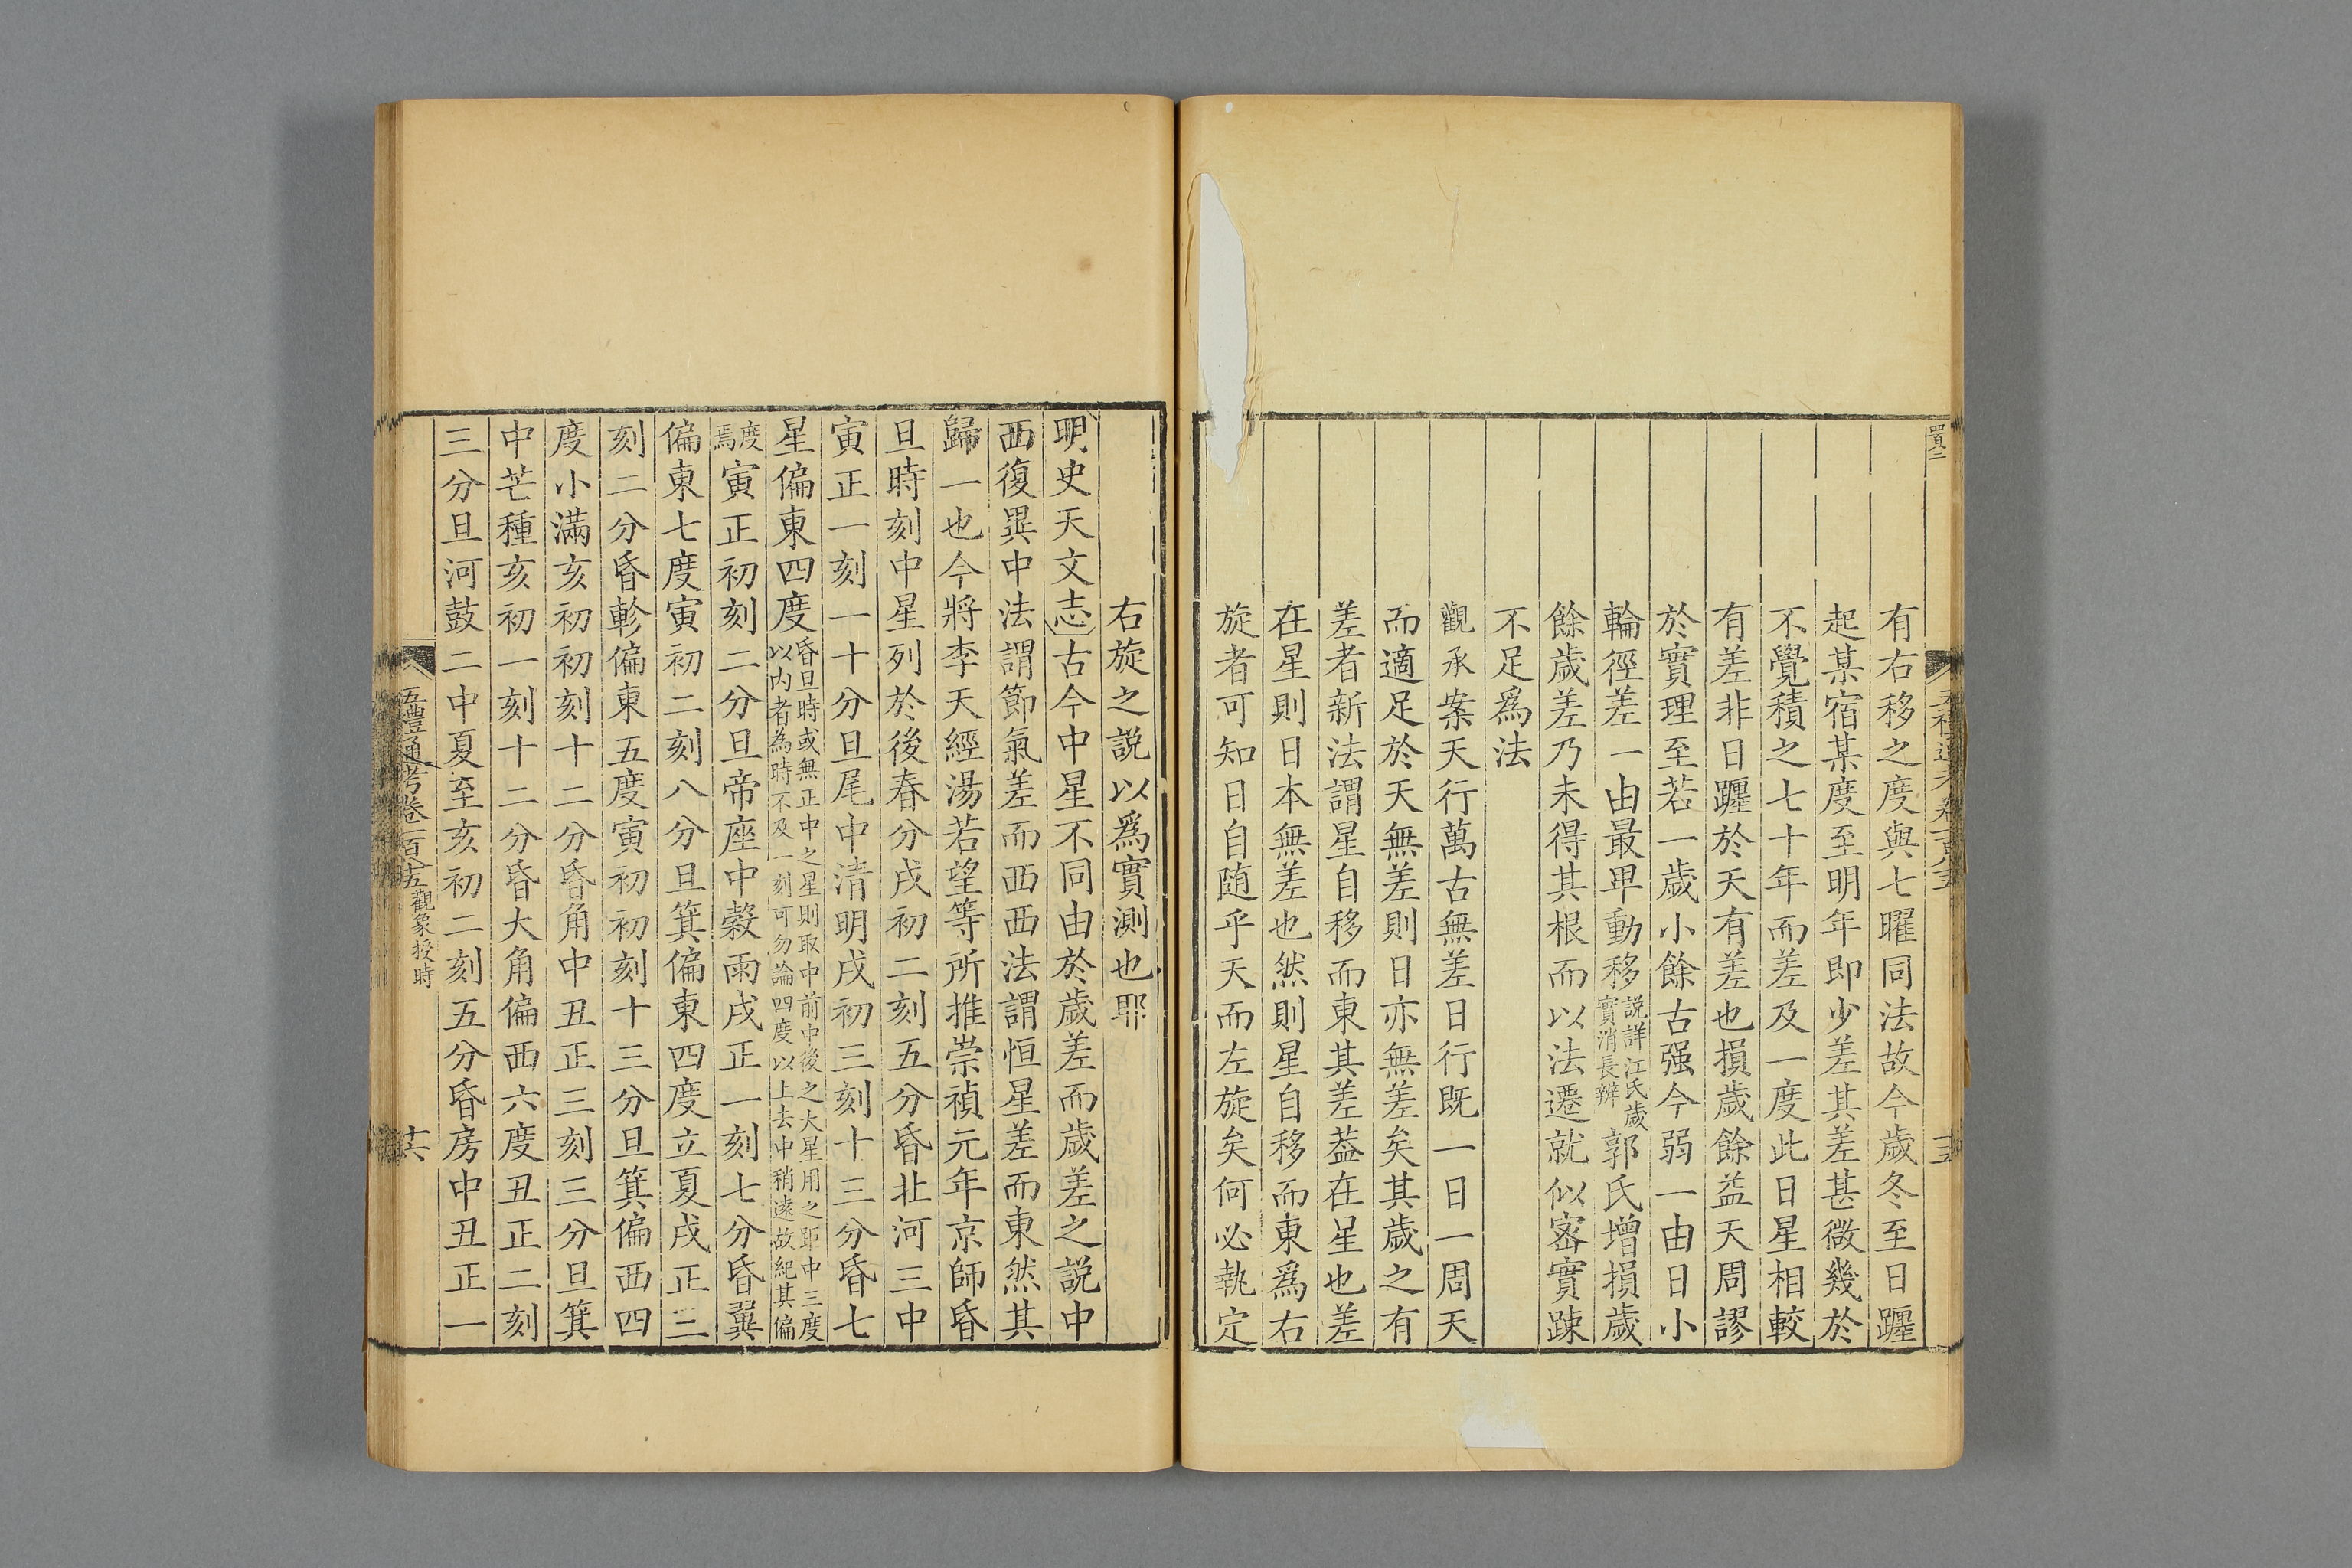 四百八二
五禮通考卷一百八十五
十五
有右移之度與七曜同法故今歲冬至日躔
起某宿某度至明年即少差其差甚微幾於
不覺積之七十年而差及一度此日星相較
有差非日躔於天有差也損歲餘益天周謬
於實理至若一歲小餘古强今弱一由日小
輪徑差一由最卑動移説詳江氏歲實消長辨郭氏增損歲
餘歲差乃未得其根而以法遷就似宻實踈
不足爲法
觀承案天行萬古無差日行既一日一周天
而適足於天無差則日亦無差矣其歲之有
差者新法謂星自移而東其差葢在星也差
在星則日本無差也然則星自移而東爲右
旋者可知日自随乎天而左旋矣何必執定
右旋之説以爲實測也耶
明史天文志古今中星不同由於歲差而歲差之説中
西復異中法謂節氣差而西西法謂恒星差而東然其
歸一也今將李天經湯若望等所推崇禎元年京師昏
旦時刻中星列於後春分戌初二刻五分昏北河三中
寅正一刻一十分旦尾中清明戌初三刻十三分昏七
星偏東四度昏旦時或無正中之星則取中前中後之大星用之距中三度以内者為時不及一刻可勿論四度以上去中稍遠故紀其偏
度焉寅正初刻二分旦帝座中穀雨戌正一刻七分昏翼
偏東七度寅初二刻八分旦箕偏東四度立夏戌正三
刻二分昏軫偏東五度寅初初刻十三分旦箕偏西四
度小滿亥初初刻十二分昏角中丑正三刻三分旦箕
中芒種亥初一刻十二分昏大角偏西六度丑正二刻
三分旦河鼓二中夏至亥初二刻五分昏房中丑正一
五禮通考卷一百八十五 觀象授時
十六